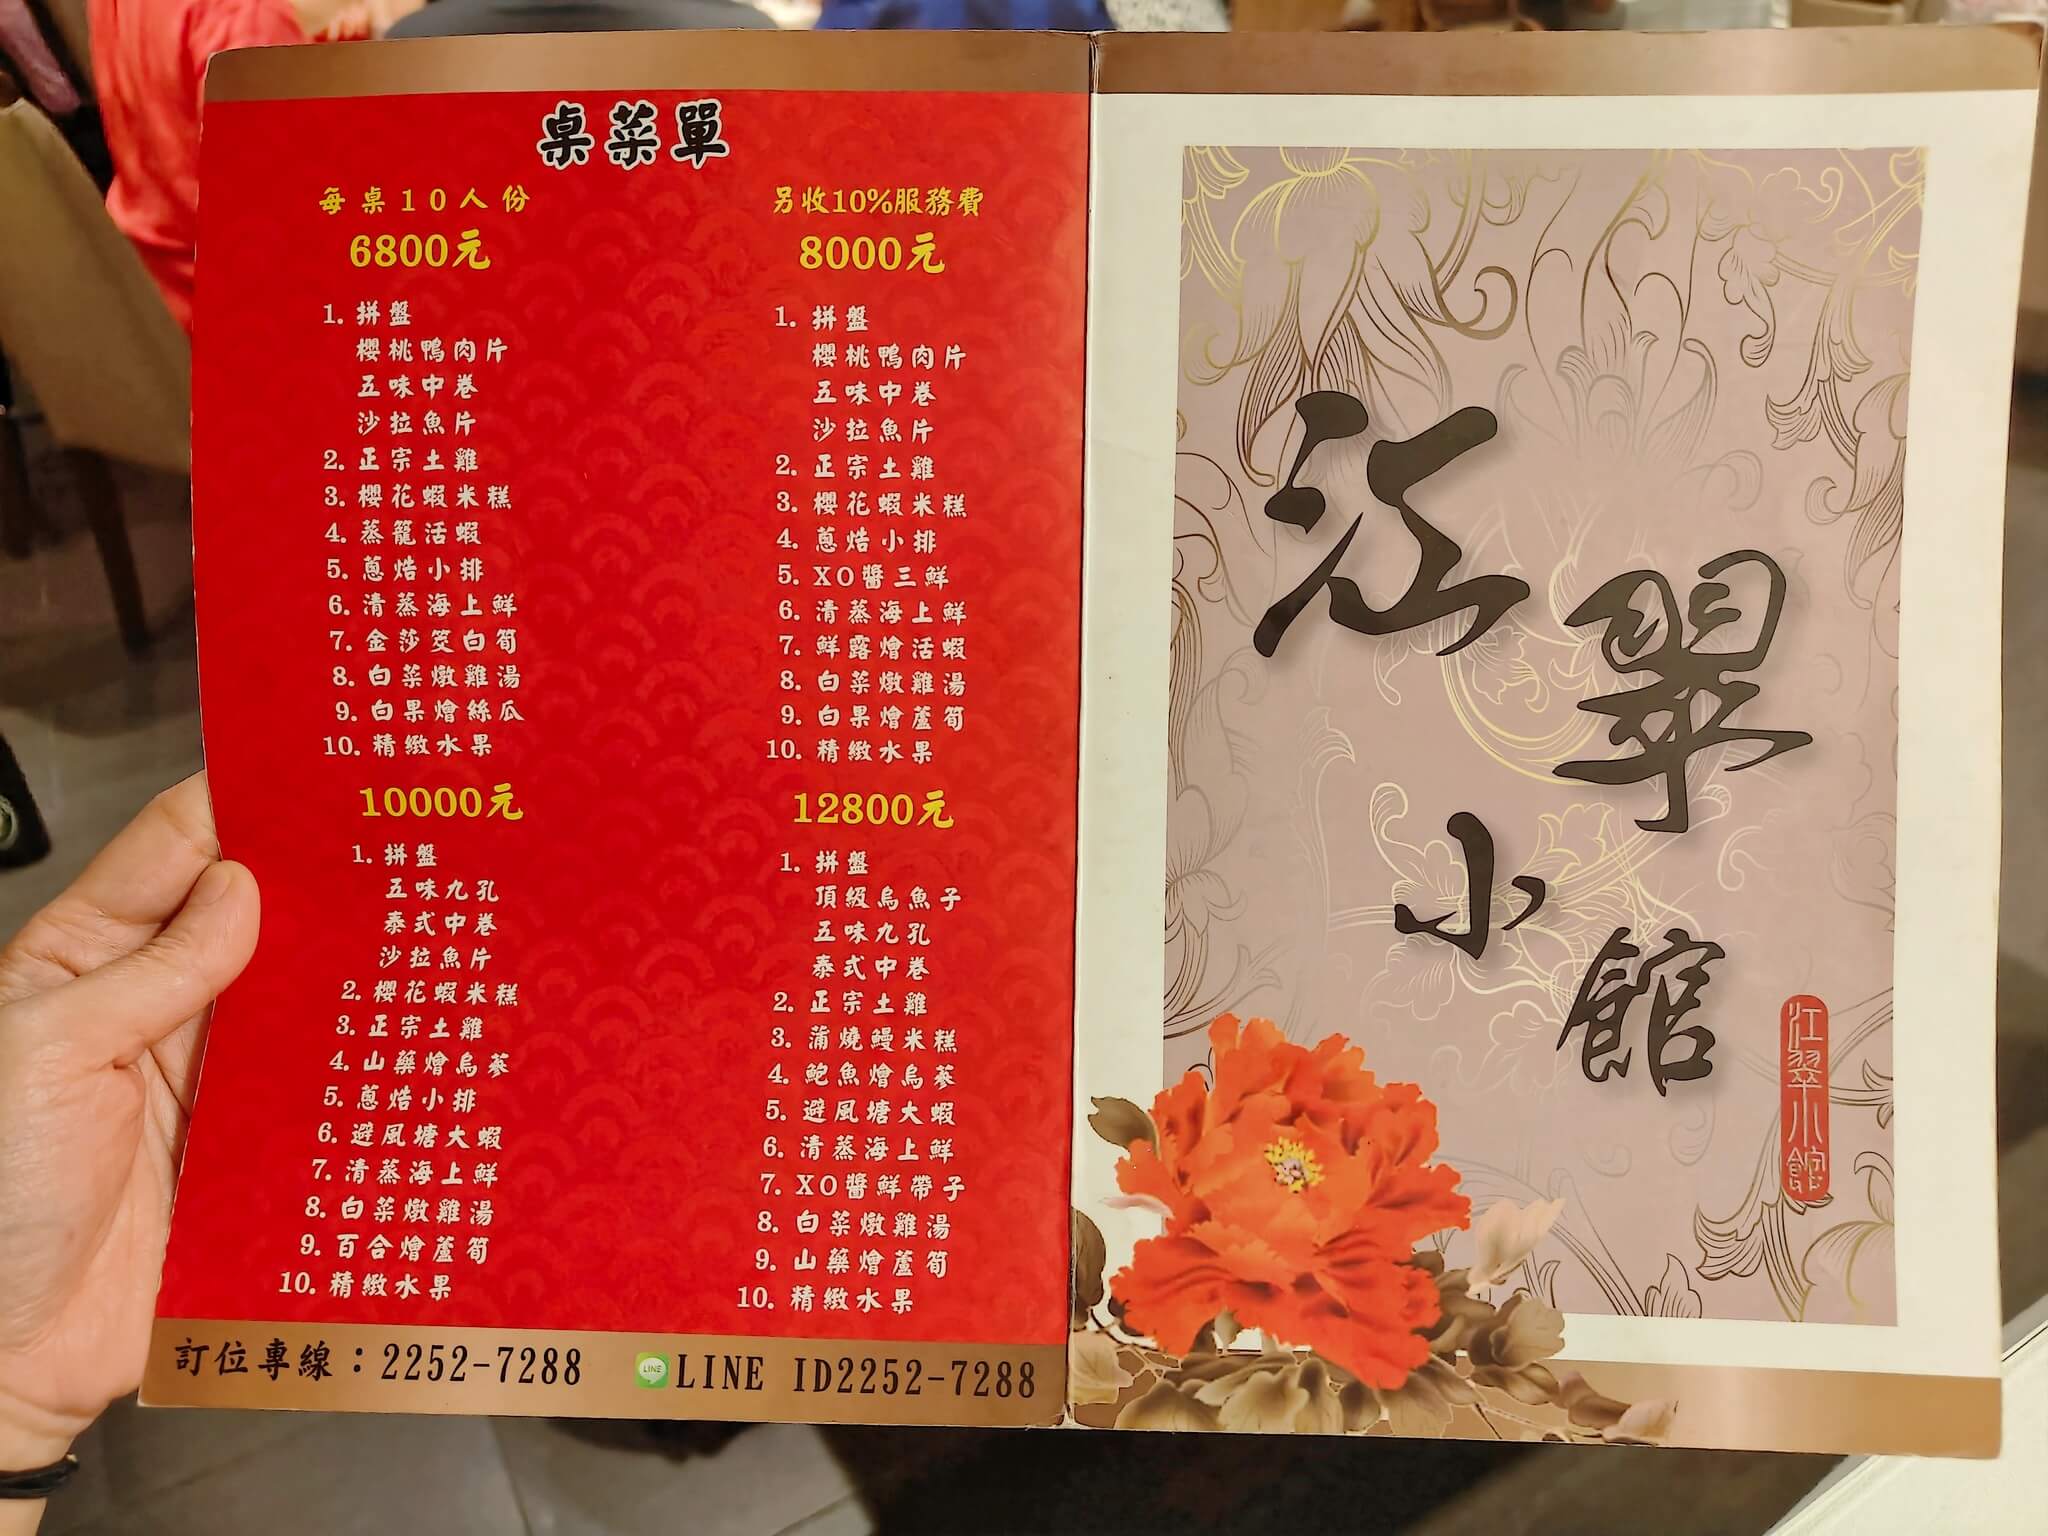 桌菜單
每桌10人份
另收10%服務費
6800元
1. 拼盤
櫻桃鴨肉片
五味中卷
沙拉魚片
2. 正宗土雞
3. 櫻花蝦米糕
4. 蒸籠活蝦
5. 蔥焅小排
6. 清蒸海上鮮
7. 金莎筊白筍
8. 白菜燉雞湯
9. 白果燴絲瓜
10. 精緻水果
8000元
1. 拼盤
櫻桃鴨肉片
五味中卷
沙拉魚片
2. 正宗土雞
3. 櫻花蝦米糕
4. 蔥焅小排
5. XO醬三鮮
6. 清蒸海上鮮
7. 鮮露燴活蝦
8. 白菜燉雞湯
9. 白果燴蘆筍
10. 精緻水果
10000元
1. 拼盤
五味九孔
泰式中卷
沙拉魚片
2. 櫻花蝦米糕
3. 正宗土雞
4. 山藥燴烏蔘
5. 蔥焅小排
6. 避風塘大蝦
7. 清蒸海上鮮
8. 白菜燉雞湯
9. 百合燴蘆筍
10. 精緻水果
12800元
1. 拼盤
頂級烏魚子
五味九孔
泰式中卷
2. 正宗土雞
3. 蒲燒鰻米糕
4. 鮑魚燴烏蔘
5. 避風塘大蝦
6. 清蒸海上鮮
7. XO醬鮮帶子
8. 白菜燉雞湯
9. 山藥燴蘆筍
10. 精緻水果
訂位專線：2252-7288
LINE
LINE ID2252-7288
江翠
小館
江翠小館